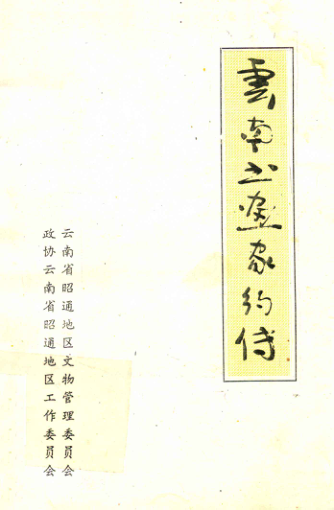 雲南书画家约传
云南省昭通地区文物管理委员会
政协云南省昭通地区工作委员会